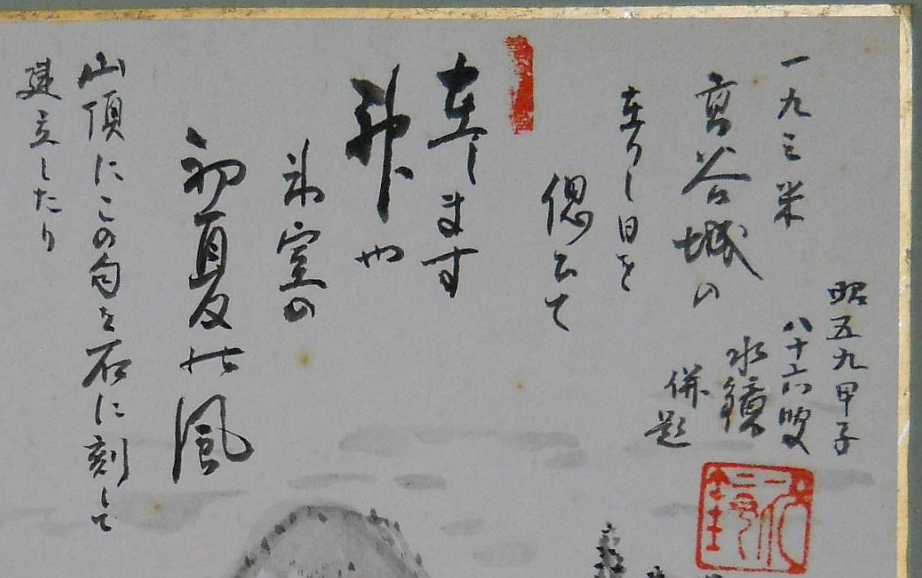 昭五九甲子
八十六叟
水鏡
併題
一九三米
高谷城の
在りし日を
偲びて
在します
神や
室の
初夏の風
山頂にこの句を石に刻して
建立したり